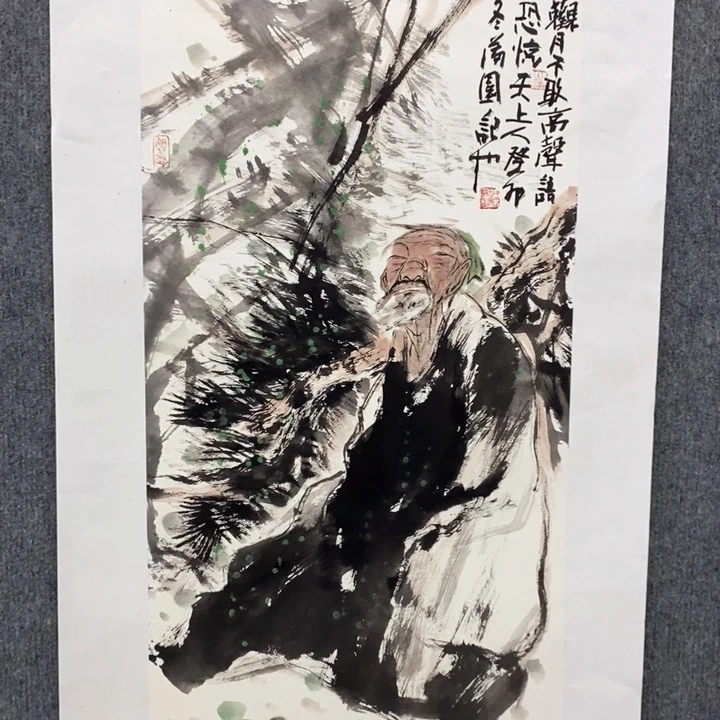 觀月不敢高聲語
恐惊天上人癸卯
冬萬園